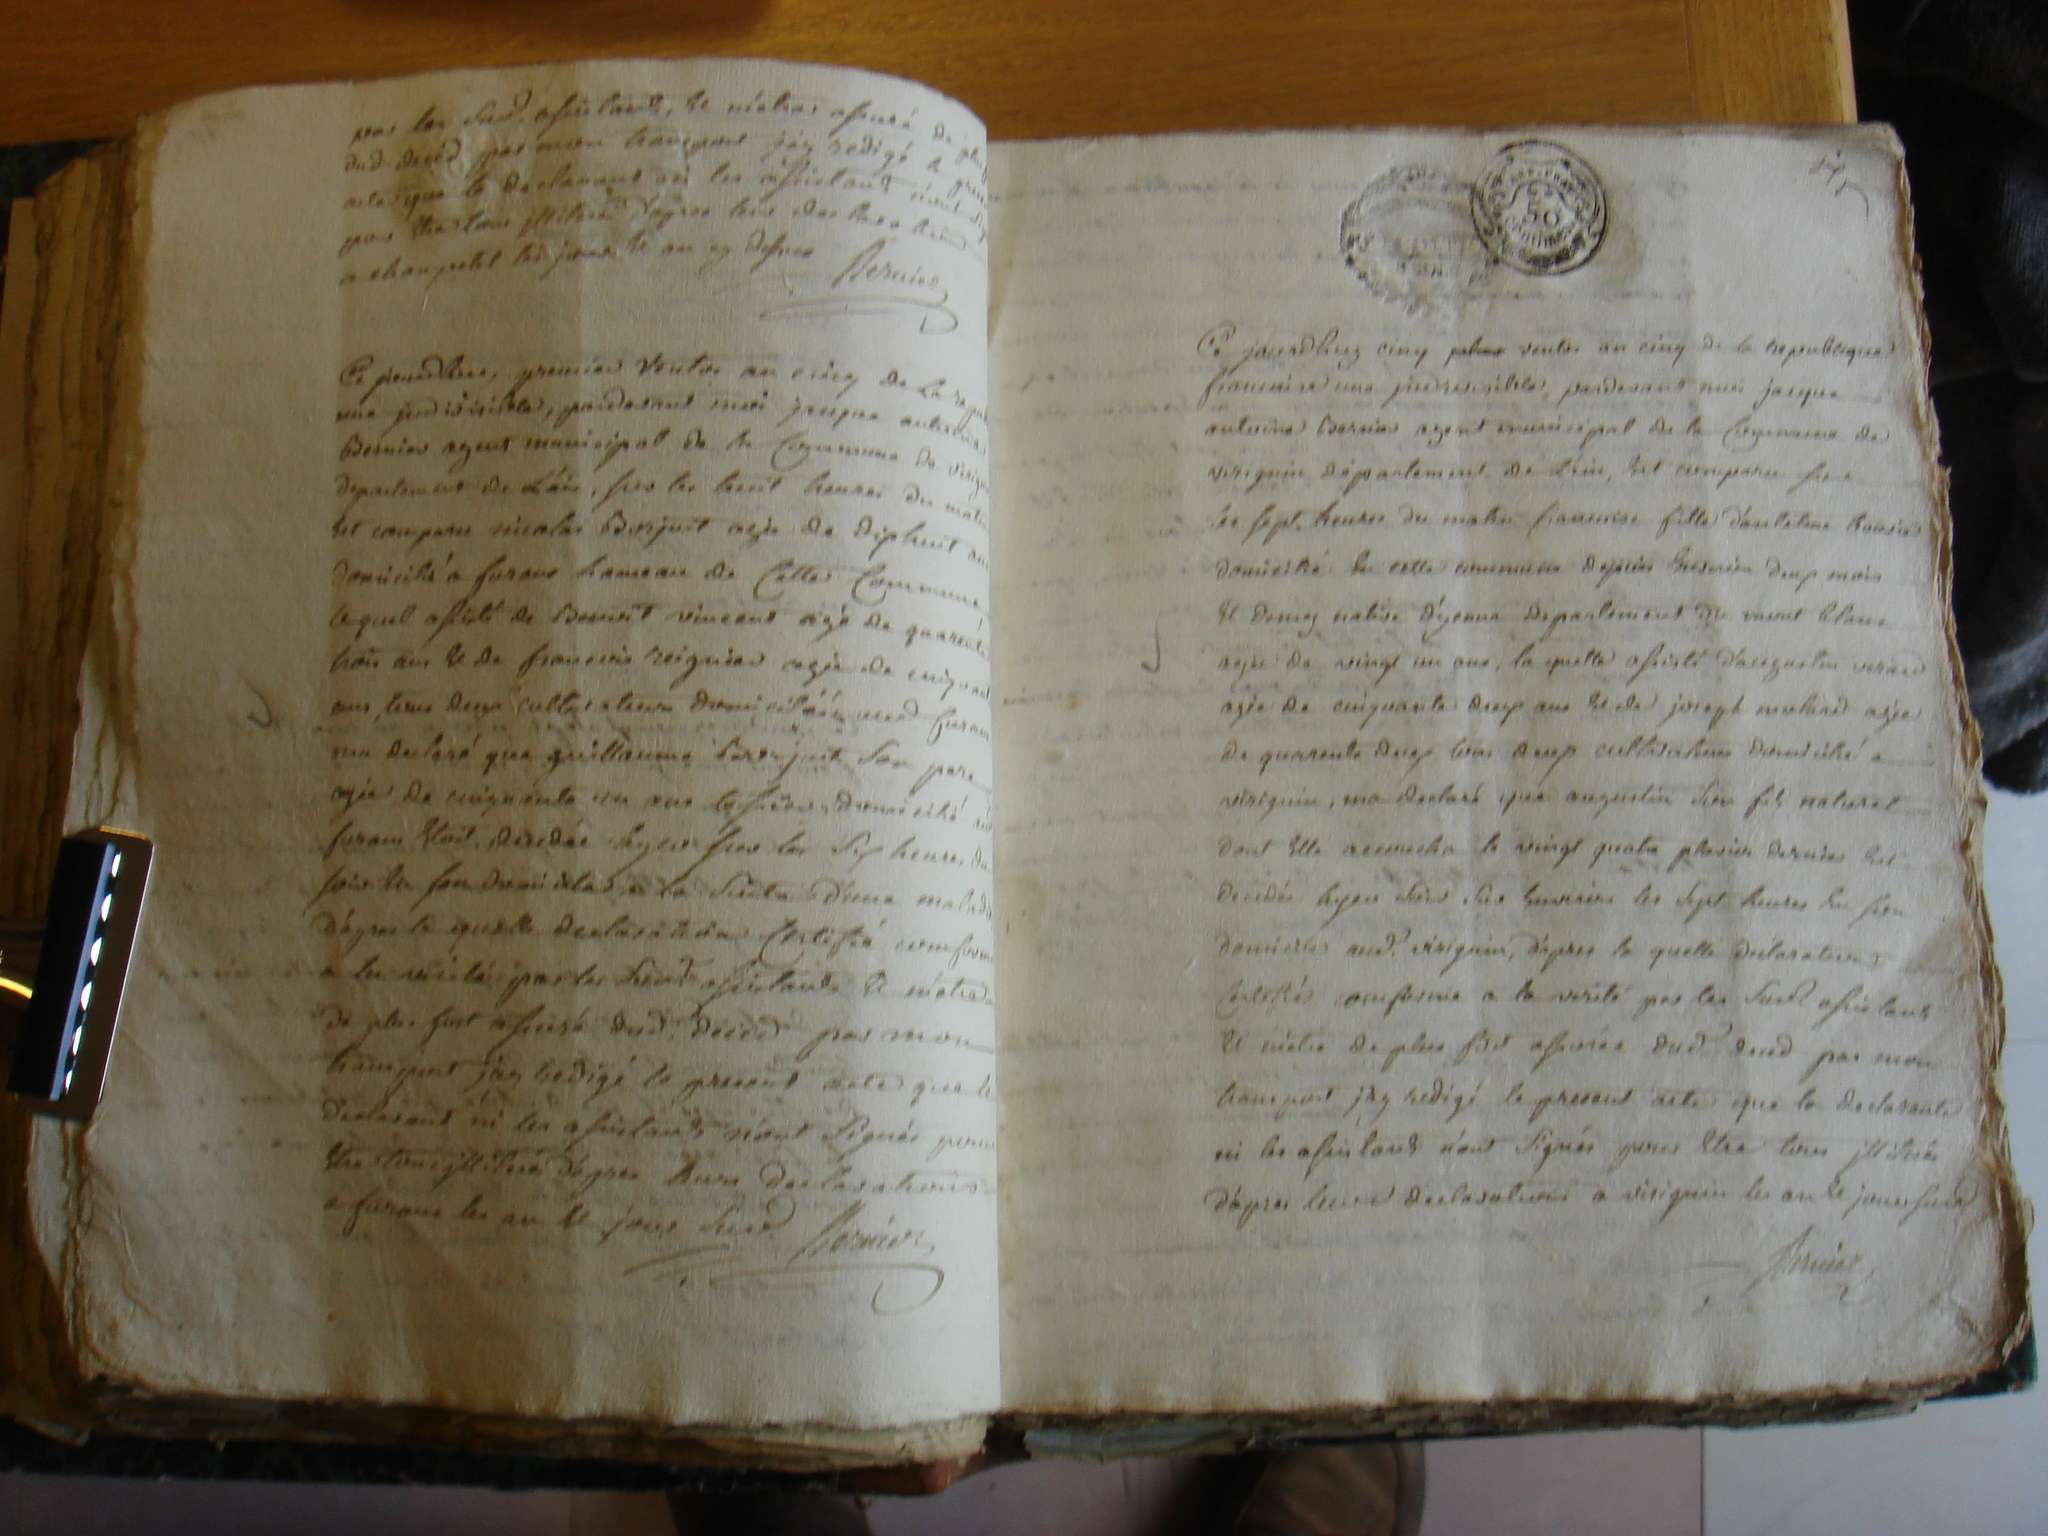 par les sud. assistants, et m'etre assuré de plus
dud. deced par mon transport jay redigé le present
acte que le declarant ni les assistants n'ont
pour etre tous illitéré d'apres leur declaration
a les jour et an cy dessus Bernier
Ce jourdhuy, premier ventos an cinq de la repub
une indivisible, pardevant moi jacque antoine
Bernier agent municipal de la Commune de virign
departement de L'ain, sur les huit heures du matin
est comparu nicolas Borjuit agé de diphuit ans
domicilié a furans hameau de Cette Commune
lequel assisté de Benoit vincent agé de quarente
trois ans et de francois reignier agé de cinquante
ans, tous deux cultivateurs domiciliés aud furans
ma declaré que guillaume Borjuit son pere
agé de cinquante un ans domicilié aud
furans etoit decedée hyer sur les six heures du
soir en son domicile a la suite d'une maladie
d'apres la quelle declaration Certifié conforme
a la verité par les susd assistants et m'etre
de plus fort assuré dud. deced par mon
transport jay redigé le present acte que le
declarant ni les assistants n'ont signés pour
etre tous illitéré d'apres leurs declarations
a furans les an et jour susd Bernier
50
Ce jourdhuy cinq ventos an cinq de la republique
francaise une indivisible, pardevant moi jacque
antoine Bernier agent municipal de la Commune de
virignin departement de L'ain, est comparu sur
les sept heures du matin francoise fille d'antelme
domicilié en cette commune depuis environ deux mois
et demy native d'yenne departement du mont blanc
agée de vingt un ans, la quelle assisté d'augustin
agée de cinquante deux ans et de joseph molard agée
de quarente deux tous deux cultivateurs domicilié a
virignin, ma declaré que augustin son fils naturel
dont elle accoucha le vingt quatre plusios dernier est
decedée hyer soir sur environ les sept heures en son
domicile aud. virignin, d'apres la quelle declaration
Certifiée conforme a la verité par les susd assistants
et m'etre de plus fort assurée dud. deced par mon
transport jay redigé le present acte que la declarante
ni les assistants n'ont signés pour etre tous illitérés
d'apres leurs declarations a virignin les an et jour susd
Bernier